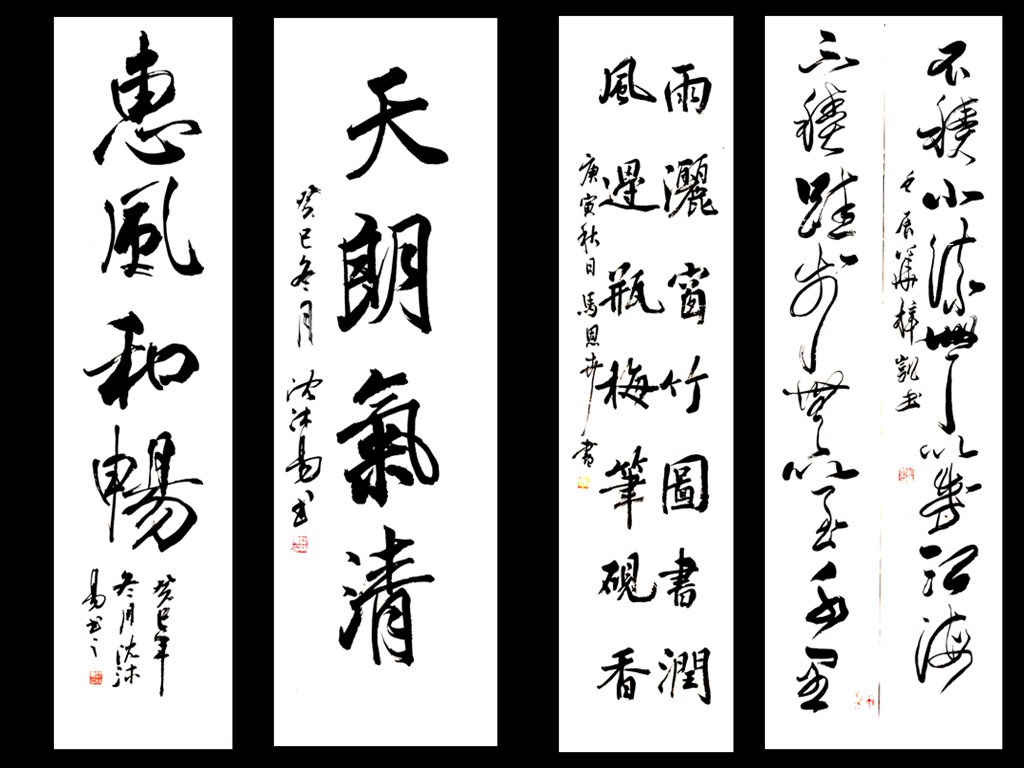 不積小流無以成江海
壬辰 梓凱书
不積跬步無以至千里
雨灑窗竹圖書潤
風過瓶梅筆硯香
庚寅秋日馬恩卉書
天朗氣清
癸巳冬月 沈沐易书
惠風和暢
癸巳年
冬月沈沐
易书